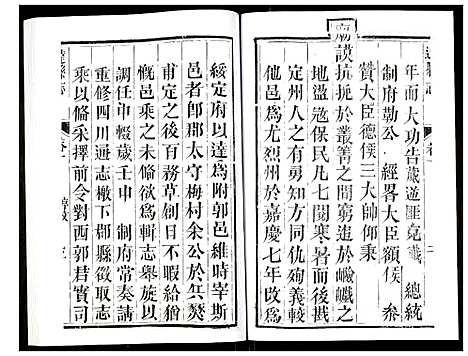 年而大功告蕆逆匪克殲　總統
制府勒公　經畧大臣額侯　叅
贊大臣德侯三大帥仰秉
廟謨抗扼於叢箐之間窮追於巉巇之
地盪寇保民凡七閱寒暑而
定州人之有勇知方同仇殉義較
他邑爲尤烈州於嘉慶七年改爲
綏定府以達爲附郭邑維時宰斯
邑者卽郡太守梅村余公於兵燹
甫定之後百務草創日不暇給猶
慨邑乘之未脩欲爲輯志舉旋以
調任中輟歲壬申　制府常奏請
重修四川通志檄下郡縣徵取志
乘以俻采擇前令對西郭君實司
達縣志